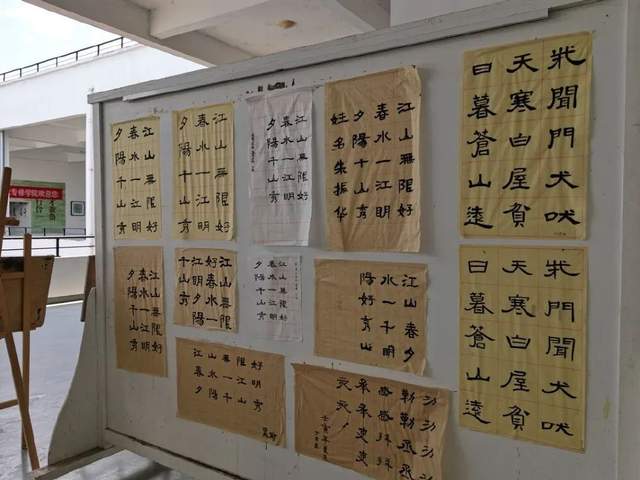 江山無限好
春水一江明
夕陽千山青
江山無限好
春水一江明
夕陽千山青
江山無限好
春水一江明
夕陽千山青
江山無限好
春水一江明
夕陽千山青
姓名朱振华
柴聞門犬吠
天寒白屋貧
日暮蒼山遠
江山無限好
春水一江明
夕陽千山青
江山無限
好春水一
江明夕陽
千山青
江山無限好
春水一江明
夕陽千山青
江山春夕
水一千明
陽好青山
江山無限好
春水一江明
夕陽千山青
柴門聞犬吠
天寒白屋貧
日暮蒼山遠
专修学院欢迎您